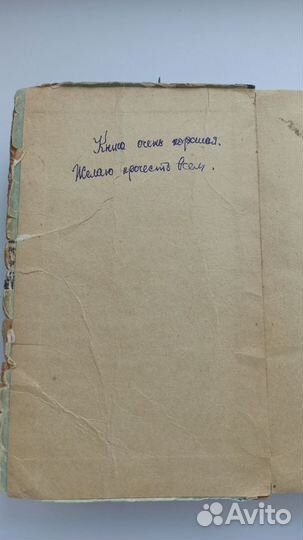 Книга очень хорошая.
Желаю прочесть всем.
Avito